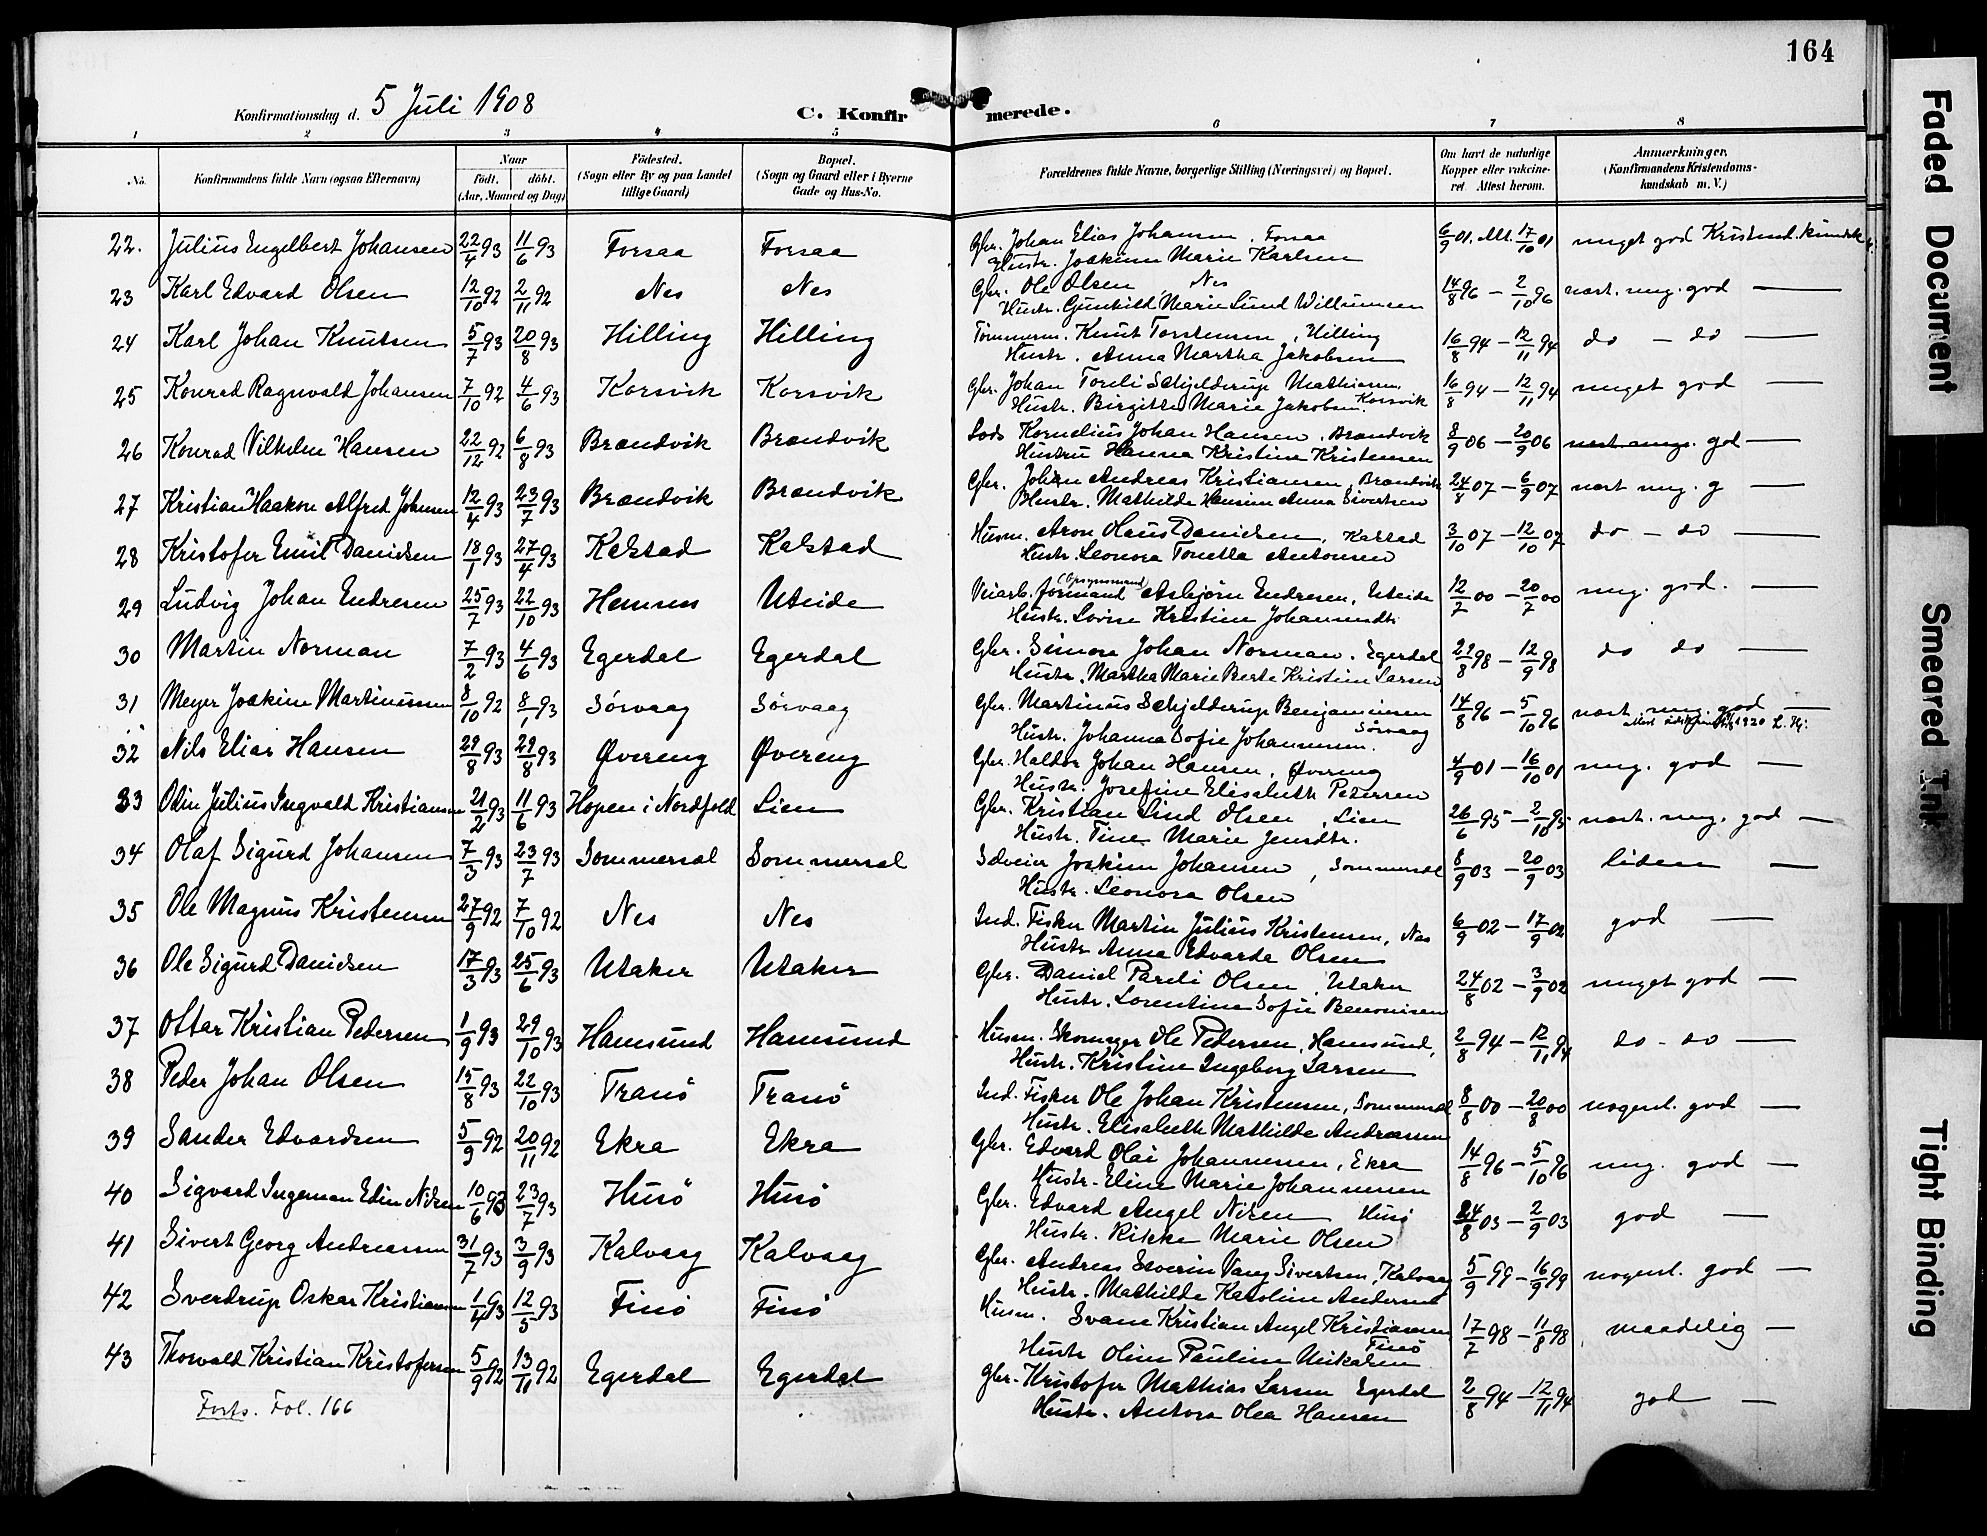 164
Konfirmationsdag d. 5 Juli 1908
C. Konfirmerede.
1 2 3 4 5 6 7 8
No.
Konfirmandens fulde Navn (ogsaa Efternavn)
Naar
Födt. döbt.
(Aar, Maaned og Dag)
Födested.
(Sogn eller By og paa Landet
tillige Gaard)
Bopæl.
(Sogn og Gaard eller i Byerne
Gade og Hus-No.
Forældrenes fulde Navne, borgerlige Stilling (Næringsvei) og Bopæl.
Om havt de naturlige
Kopper eller vakcine-
ret. Attest herom.
Anmærkninger.
(Konfirmandens Kristendoms-
kundskab m. V.)
22. Julius Engelbert Johansen 22/4 93 11/6 93 Forsaa Forsaa Gbr. Johan Elias Johansen, Forsaa 6/9 01. Att. 17/10 01 meget god Kristend.kundsk.
Hustr. Joakime Marie Karlsen
23 Karl Edvard Olsen 12/10 92 2/11 92 Nes Nes Gbr. Ole Olsen, Nes 14/8 96 – 2/10 96 næst. mg. god —
Hustr. Gunhild Marie Lund Willumsen
24 Karl Johan Knutsen 5/7 93 20/8 93 Hilling Hilling Tømmerm. Knut Torstensen, Hilling 16/8 94 – 12/11 94 do – do —
Hustr. Anna Martha Jakobsen
25 Konrad Ragnvald Johansen 7/10 92 4/6 93 Korsvik Korsvik Gbr. Johan Toreli Schjelderup Mathiasen 16/8 94 – 12/11 94 meget god —
Hustr. Birgitte Marie Jakobsen. Korsvik
26 Konrad Vilhelm Hansen 22/12 92 6/8 93 Brændvik Brændvik Lods Kornelius Johan Hansen, Brændvik 8/9 06 – 20/9 06 næst meg. god —
Hustru Hanna Kristine Kristensen
27 Kristian Haakon Alfred Johansen 12/4 93 23/7 93 Brændvik Brændvik Gbr. Johan Andreas Kristiansen, Brændvik 24/8 07 – 6/9 07 næst mg. g —
Hustr. Mathilde Hansine Anna Sivertsen
28 Kristofer Emil Danielsen 18/1 93 27/4 93 Kalstad Kalstad Husm. Aron Olaus Danielsen, Kalstad 3/10 07 – 12/10 07 do – do —
Hustr. Leonora Tonetta Antonsen
29 Ludvig Johan Endresen 25/7 93 22/10 93 Hemnes Uteide (Opsynsmand)
Veiarb. formand Asbjørn Endresen, Uteide 12/7 00 – 20/7 00 mg. god. —
Hustr. Lovise Kristine Johannesdtr
30 Martin Norman 7/2 93 4/6 93 Egerdal Egerdal Gbr. Simon Johan Norman. Egerdal 29/8 98 – 12/9 98 do do —
Hustr. Martha Marie Berte Kristine Larsen
31 Meyer Joakim Martinussen 8/10 92 8/1 93 Sørvaag Sørvaag Gbr. Martinus Schjelderup Benjaminsen 14/8 96 – 5/10 96 næst. mg. god —
Hustr. Johanna Sofie Johannesen. Sørvaag
32 Nils Elias Hansen 29/8 93 29/8 93 Øvereng Øvereng Gbr. Haldor Johan Hansen, Øvereng 4/9 01 – 16/10 01 mg. god —
Hustr. Josefine Elisabeth Petersen
33 Odin Julius Ingvald Kristiansen 21/2 93 11/6 93 Hopen i Nordfold Lien Gbr. Kristian Lind Olsen, Lien 26/6 95 – 2/10 95 næst. mg. god —
Hustr. Tine Marie Jensdtr.
34 Olaf Sigurd Johansen 7/3 93 23/7 93 Sommersel Sommersel Selveier Joakim Johansen, Sommersel 8/9 03 – 20/9 03 liden —
Hustr. Leonora Olsen
35 Ole Magnus Kristensen 27/9 92 7/10 92 Nes Nes Ind. Fisker Martin Julius Kristensen, Nes 6/9 02 – 17/9 02 god —
Hustr Anna Edvarda Olsen
36 Ole Sigurd Danielsen 17/3 93 25/6 93 Utaker Utaker Gbr. Daniel Pareli Olsen, Utaker 24/8 02 – 3/9 02 meget god —
Hustr. Lorentine Sofie Benonisen
37 Ottar Kristian Pedersen 1/9 93 29/10 93 Hamsund Hamsund Husm. Skomager Ole Pedersen, Hamsund, 2/8 94 – 12/11 94 do – do —
Hustr. Kristine Ingeborg Larsen
38 Peder Johan Olsen 15/8 93 22/10 93 Tranö Tranö Ind. Fisker Ole Johan Kristensen, Sommersel 8/8 00 – 20/8 00 nogenl. god —
Hustr. Elisabeth Mathilde Andreassen
39 Sander Edvardsen 5/9 92 20/11 92 Ekra Ekra Gbr. Edvard Olai Johannesen, Ekra 14/8 96 – 5/10 96 mg. god —
Hustr. Eline Marie Johannesen
40 Sigvard Ingeman Edin Nilsen 10/6 93 23/7 93 Husö Husö Gbr. Edvard Angel Nilsen Husö 24/8 03 – 2/9 03 god —
Hustr. Rikke Marie Olsen
41 Sivert Georg Andreassen 31/7 93 3/9 93 Kalvaag Kalvaag Gbr. Andreas Severin Vang Sivertsen, Kalvaag 5/9 99 – 16/9 99 nogenl. god —
Hustr. Mathilde Karoline Andersen
42 Sverdrup Oskar Kristiansen 1/4 93 12/5 93 Finö Finö Husm. Svane Kristian Angel Kristiansen 17/7 98 – 11/8 98 maadelig —
Hustr Oline Pauline Mikalsen Finö
43 Thorvald Kristian Kristofersen 5/9 92 13/11 92 Egerdal Egerdal Gbr. Kristofer Mathias Larsen Egerdal 2/8 94 – 12/11 94 god —
Hustr. Antora Olea Hansen
Forts. Fol. 166
Faded Document
Smeared Ink
Tight Binding